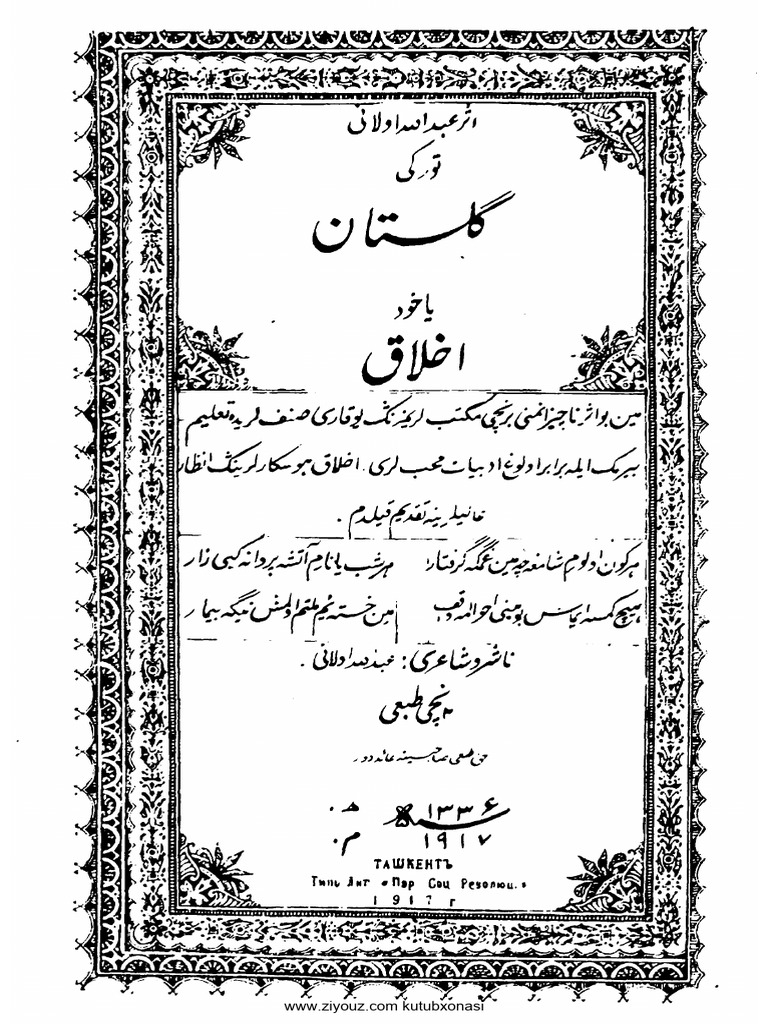 اثر عبدالله اولانی
تورکی
گلستان
یاخود
اخلاق
مین بو اثر ناچیزانمنی برنچی مکتب لریمزنگ یوقاری صنف لریده تعلیم
بیرمک ایله برابر اولوغ ادبیات محب لری، اخلاق هوسکارلرینگ انظار
عالیلرینه تقدیم قیلدم .
هرکون اولوم شامغه چه مین غمگه گرفتار هر شب یانام آتشه پروانه کبی زار
هیچ کمسه ایماس بو مینی احوالمه واقف مین خسته نیم ملتم اولمش نیگه بیمار
ناشر و شاعری: عبدالله اولانی .
۲ نچی طبعی
حق طبعی صاحبینه عائددور
سنه ۱۳۳۶ ه .
۱۹۱۷ م .
ТАШКЕНТЪ
Типь Лит «Пар Соц Революц.»
1917 г
www.ziyouz.com kutubxonasi